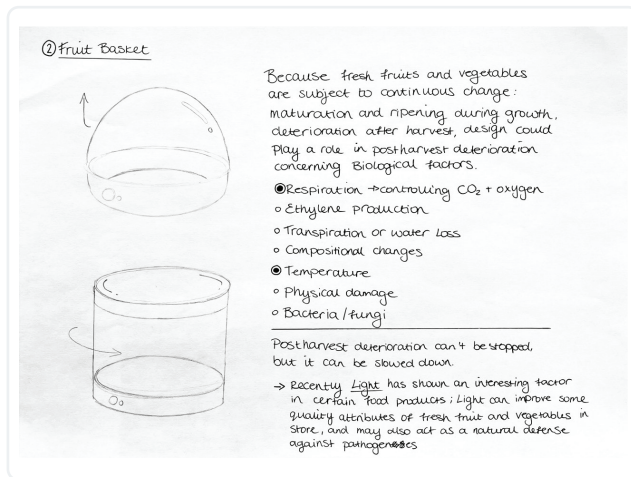 ② Fruit Basket
Because fresh fruits and vegetables
are subject to continuous change:
maturation and ripening during growth,
deterioration after harvest, design could
play a role in postharvest deterioration
concerning Biological factors.
◉ Respiration → controlling CO₂ + oxygen
○ Ethylene production
○ Transpiration or water Loss
○ Compositional changes
◉ Temperature
○ Physical damage
○ Bacteria/fungi
Postharvest deterioration can't be stopped,
but it can be slowed down.
→ Recently Light has shown an interesting factor
in certain food products; Light can improve some
quality attributes of fresh fruit and vegetables in
store, and may also act as a natural defense
against